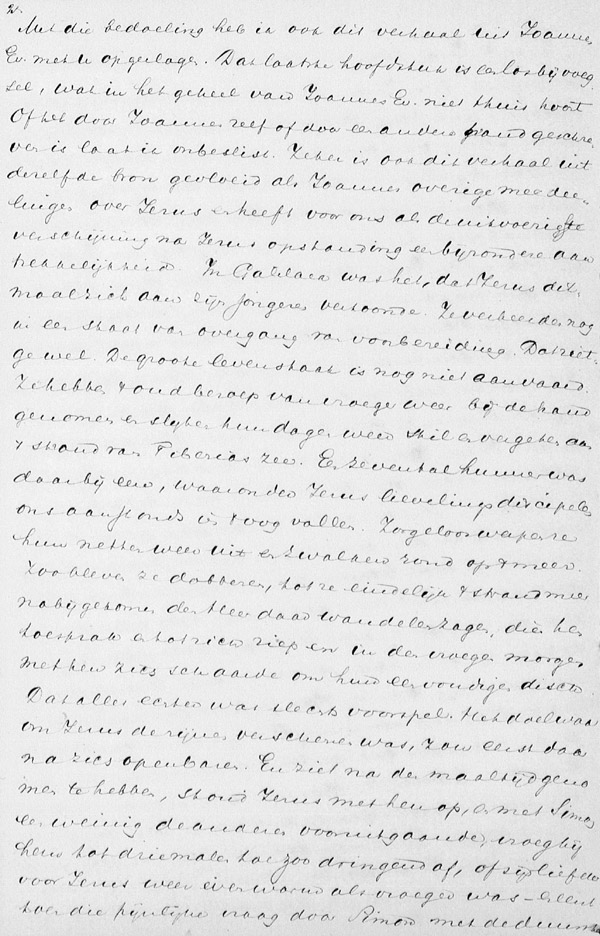 2.
Met die bedoeling heb ik ook dit verhaal uit Joannes
Ev. met u opgeslagen. Dat laatste hoofdstuk is een los bijvoeg-
sel, wat in het geheel van Joannes Ev. niet thuis hoort
Of het door Joannes zelf of door een andere hand geschre-
ven is laat ik onbeslist. Zeker is ook dit verhaal uit
dezelfde bron gevloeid als Joannes overige mededee-
lingen over Jezus en heeft voor ons als de uitvoerigste
verschijning na Jezus opstanding een bijzondere aan
trekkelijkheid. In Galilaea was het, dat Jezus dit-
maal zich aan zijn jongeren vertoonde. Ze verkeerden nog
in een staat van overgang van voorbereiding. Dat ziet-
ge wel. De groote levenstaak is nog niet aanvaard.
Ze hebben 't oud beroep van vroeger weer bij de hand
genomen en slijten hun dagen weer stil en vergeten aan
't strand van Tiberias zee. Een zevental hunner was
daar bijeen, waaronder Jezus lievelingsdiscipelen
ons aanstonds in 't oog vallen. Zorgeloos werpen ze
hun netten weer uit en zwalken rond op 't meer.
Zoo bleven ze dobberen, tot ze eindelijk 't strand meer
nabijgekomen den Heer daar wandelen zagen, die hen
toesprak en tot zich riep en in den vroegen morgen
met hen zich schaarde om hun eenvoudigen disch.
Dat alles echter was slechts voorspel. Het doel waar
om Jezus de zijnen verschenen was, zou eerst daar
na zich openbaren. En ziet na den maaltijd geno
men te hebben, stond Jezus met hen op, en met Simon
een weinig de anderen vooruitgaande, vroeg hij
hem tot driemalen toe zoo dringend af, of zijn liefde
voor Jezus weer even warm als vroeger was – en eerst
toen die pijnlijke vraag door Simon met de